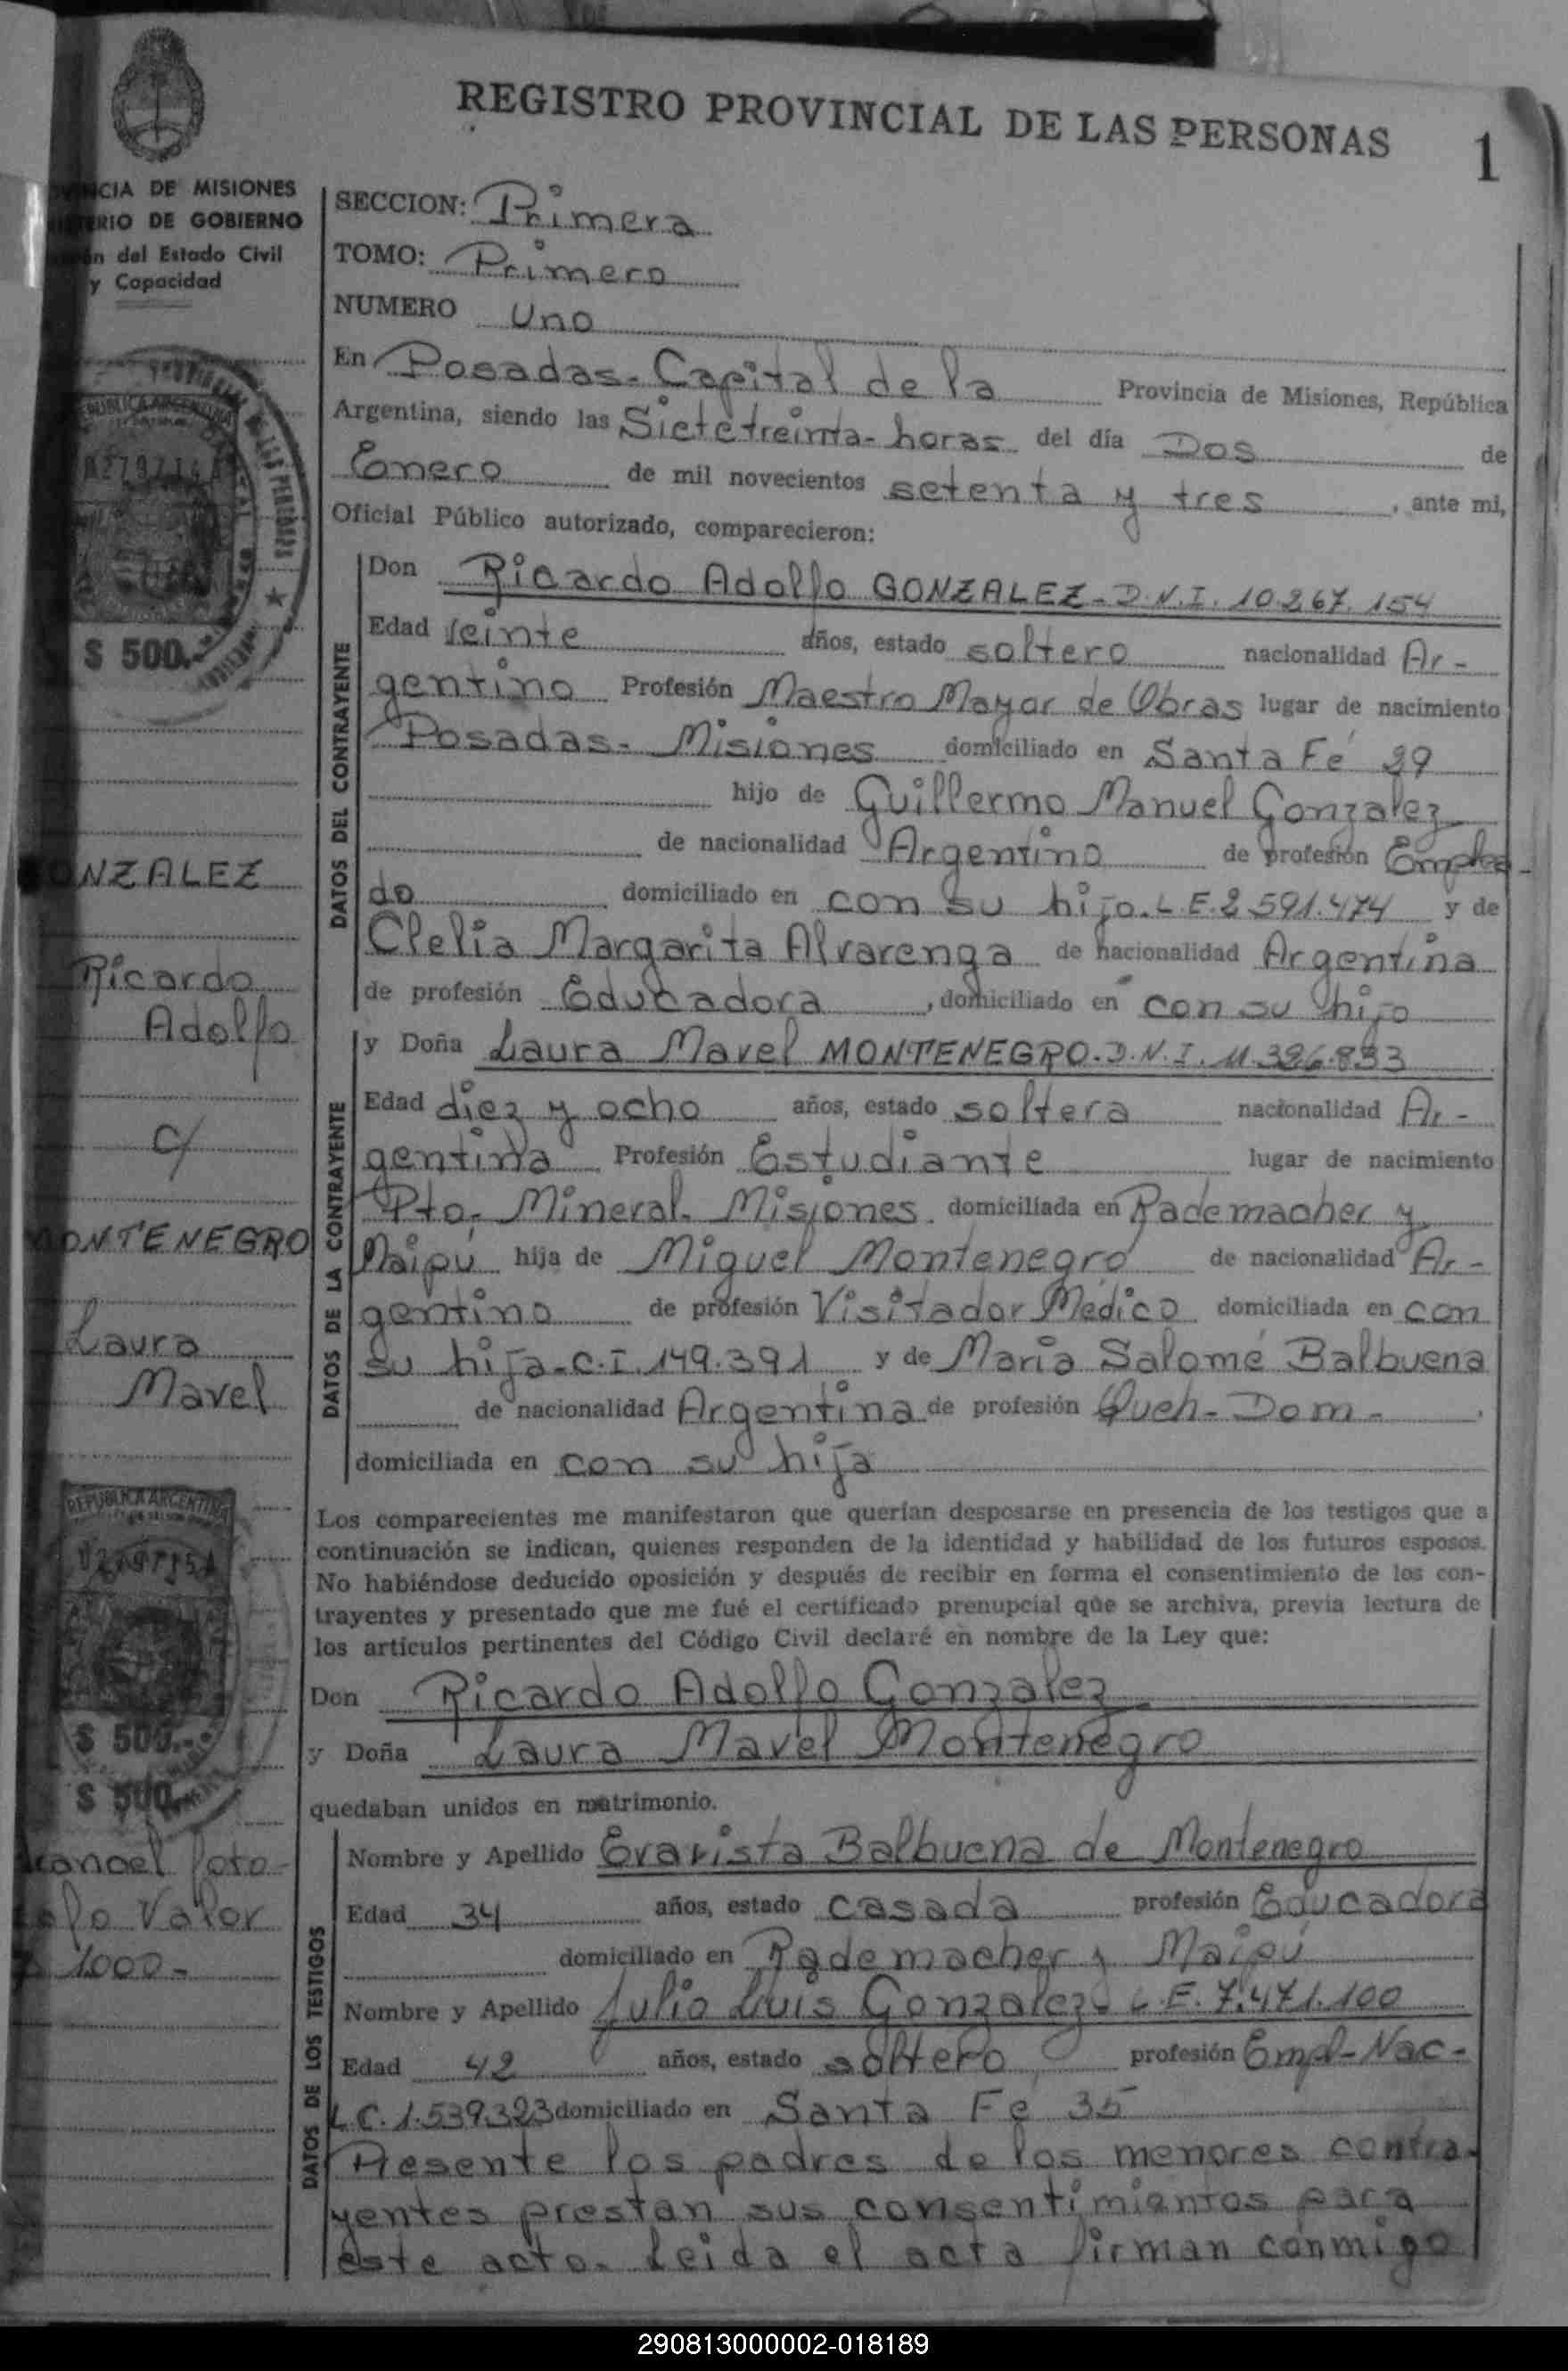 REGISTRO PROVINCIAL DE LAS PERSONAS 1
DE MISIONES
DE GOBIERNO
del Estado Civil
y Capacidad
SECCION: Primera
TOMO: Primero
NUMERO Uno
En Posadas - Capital de la Provincia de Misiones, República
Argentina, siendo las Siete treinta - horas del día Dos de
Enero de mil novecientos setenta y tres, ante mi,
Oficial Público autorizado, comparecieron:
DATOS DEL CONTRAYENTE
Don Ricardo Adolfo GONZALEZ - D.N.I. 10.267.154
Edad veinte años, estado soltero nacionalidad Ar-
gentino Profesión Maestro Mayor de Obras lugar de nacimiento
Posadas - Misiones domiciliado en Santa Fé 29
hijo de Guillermo Manuel Gonzalez
de nacionalidad Argentino de profesión Emplea-
do domiciliado en con su hijo. L.E. 2.591.474 y de
Clelia Margarita Alvarenga de nacionalidad Argentina
de profesión Educadora, domiciliado en con su hijo
DATOS DE LA CONTRAYENTE
y Doña Laura Mavel MONTENEGRO. D.N.I. 11.396.833
Edad diez y ocho años, estado soltera nacionalidad Ar-
gentina Profesión Estudiante lugar de nacimiento
Pto. Mineral - Misiones. domiciliada en Rademacher y
Maipú hija de Miguel Montenegro de nacionalidad Ar-
gentino de profesión Visitador Médico domiciliada en con
su hija - C.I. 149.391 y de María Salomé Balbuena
de nacionalidad Argentina de profesión Queh - Dom -
domiciliada en con su hija
Los comparecientes me manifestaron que querían desposarse en presencia de los testigos que a
continuación se indican, quienes responden de la identidad y habilidad de los futuros esposos.
No habiéndose deducido oposición y después de recibir en forma el consentimiento de los con-
trayentes y presentado que me fué el certificado prenupcial que se archiva, previa lectura de
los artículos pertinentes del Código Civil declaré en nombre de la Ley que:
Don Ricardo Adolfo Gonzalez
y Doña Laura Mavel Montenegro
quedaban unidos en matrimonio.
DATOS DE LOS TESTIGOS
Nombre y Apellido Evarista Balbuena de Montenegro
Edad 34 años, estado casada profesión Educadora
domiciliado en Rademacher y Maipú
Nombre y Apellido Julio Luis Gonzalez L.E. 7.471.100
Edad 42 años, estado soltero profesión Empl - Nac -
L.C. 1.539.323 domiciliado en Santa Fé 35
Presente los padres de los menores contra-
yentes prestan sus consentimientos para
este acto. Leida el acta firman conmigo
REPUBLICA ARGENTINA
$ 500.-
ONZALEZ
Ricardo
Adolfo
c/
MONTENEGRO
Laura
Mavel
REPUBLICA ARGENTINA
$ 500.-
$ 500.-
Valor
1000-
290813000002-018189